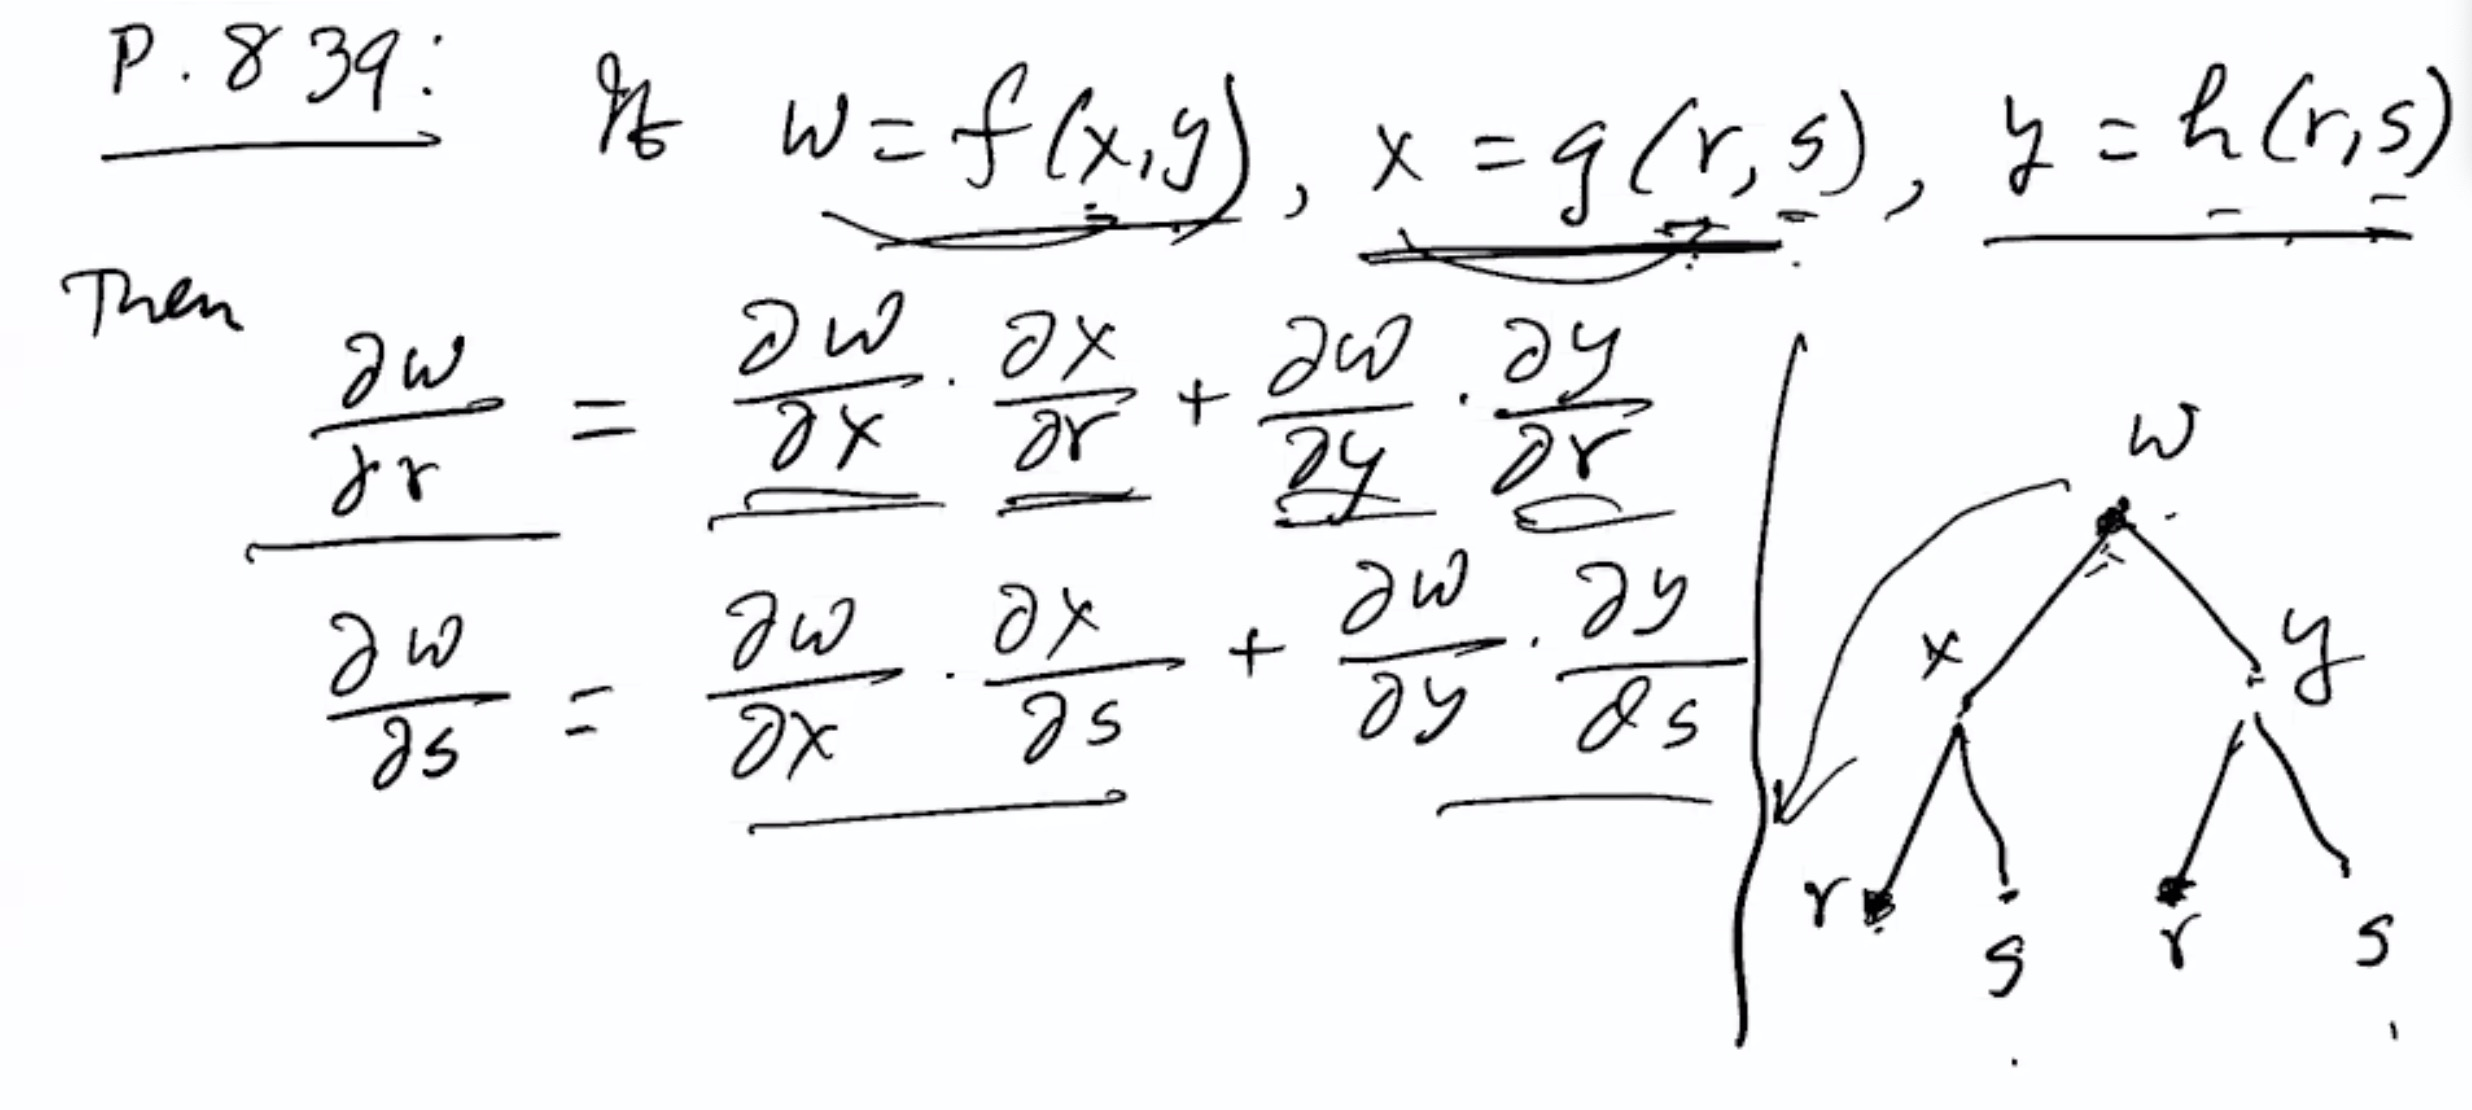 P. 839: If w = f(x,y), x = g(r,s), y = h(r,s)
Then
∂w/∂r = ∂w/∂x · ∂x/∂r + ∂w/∂y · ∂y/∂r
∂w/∂s = ∂w/∂x · ∂x/∂s + ∂w/∂y · ∂y/∂s
w
x y
r s r s